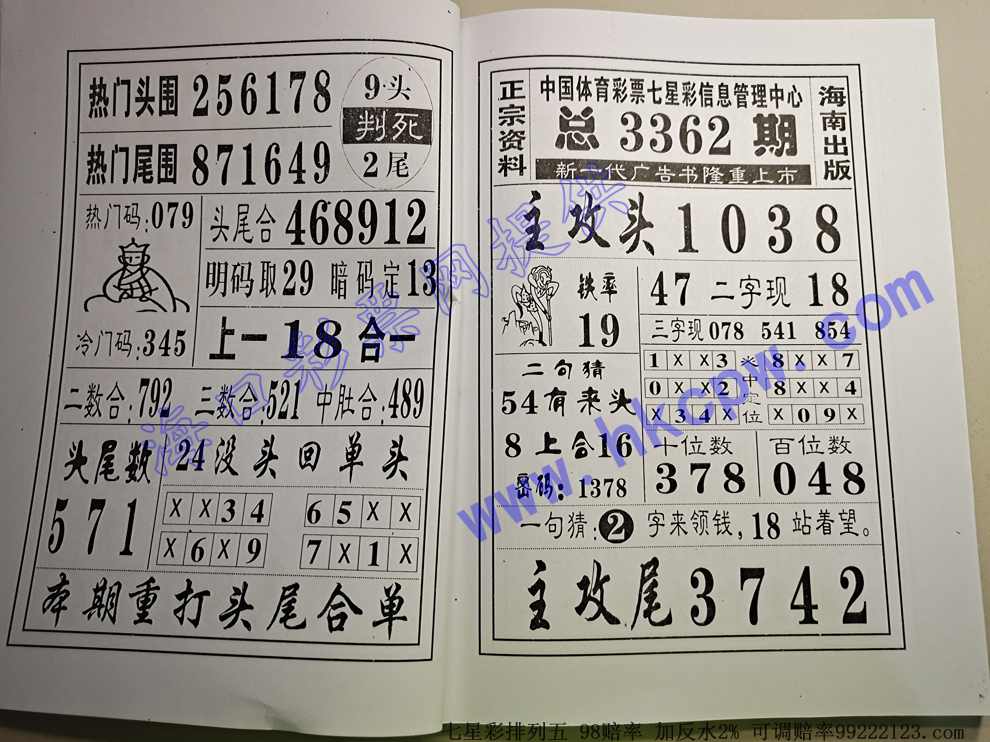 热门头围 256178
9头
判死
2尾
热门尾围 871649
热门码:079
冷门码:345
头尾合 468912
明码取29 暗码定13
上一18合一
二数合:792 三数合:521 中肚合:489
头尾数 24没头回单头
571
X X 3 4
6 5 X X
X 6 X 9
7 X 1 X
本期重打头尾合单
正宗资料
中国体育彩票七星彩信息管理中心
总 3362 期
新一代广告书隆重上市
海南出版
主攻头 1038
铁率
19
47 二字现 18
三字现 078 541 854
1 X X 3
8 X X 7
0 X X 2
8 X X 4
X 3 4 X
X 0 9 X
头中定位
二句猜
54有来头
8上合16
密码:1378
十位数
378
百位数
048
一句猜:2字来领钱,18站着望。
主攻尾 3742
海口彩票网提供
www.hkcpw.com
七星彩排列五 98赔率 加反水2% 可调赔率99222123.com